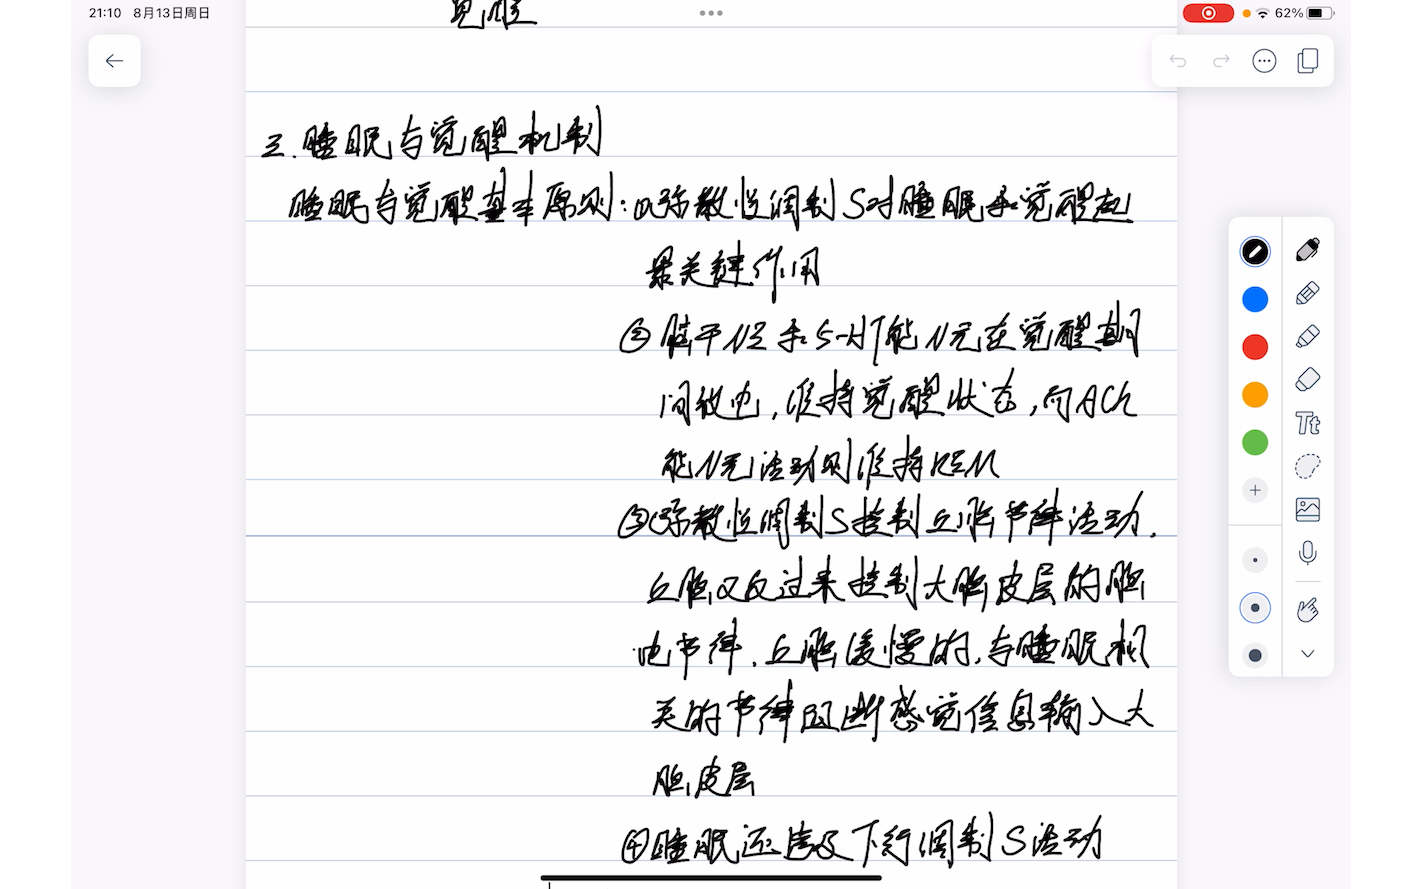 21:10 8月13日周日
62%
觉醒
三.睡眠与觉醒机制
睡眠与觉醒基本原则:①弥散性调制S对睡眠和觉醒起
最关键作用
②脑干NE和5-HT能N元在觉醒期
间放电,维持觉醒状态,而ACh
能N元活动则维持REM
③弥散性调制S控制丘脑节律活动,
丘脑又反过来控制大脑皮层的脑
电节律.丘脑缓慢的,与睡眠相
关的节律阻断感觉信息输入大
脑皮层
④睡眠还涉及下行调制S活动
Tt